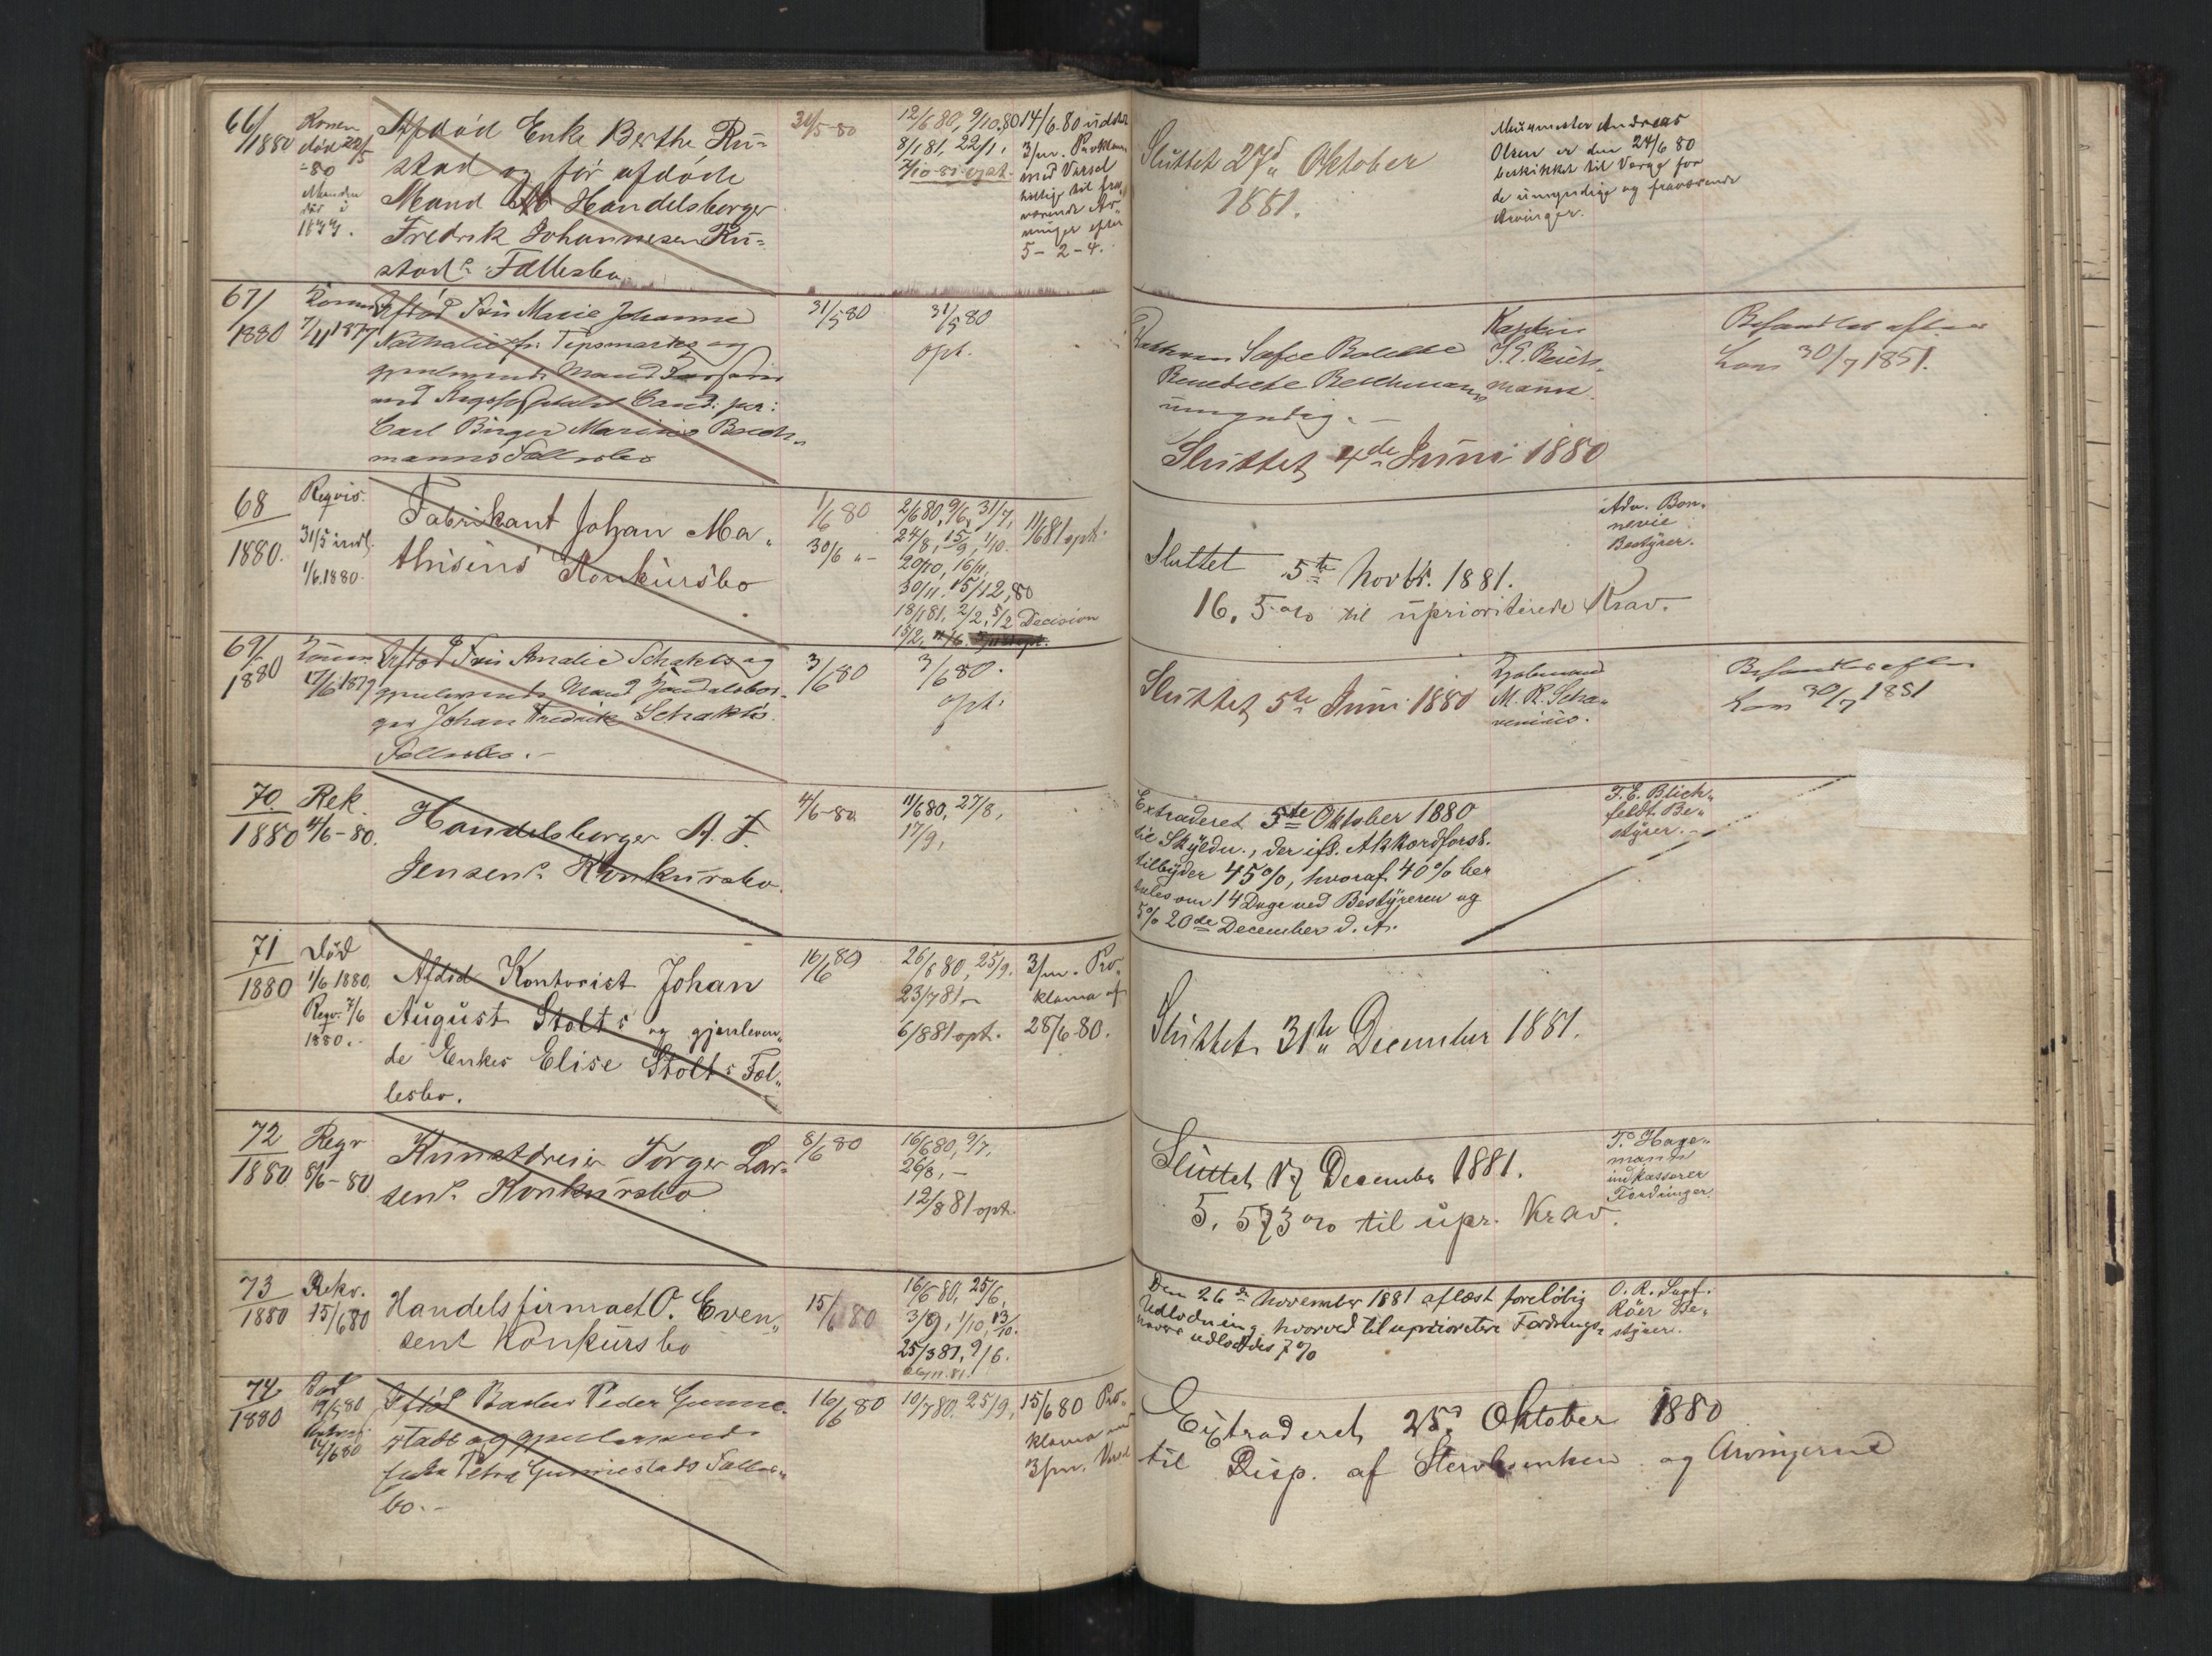 66/1880
Konen
død 22/5
-80
Manden
død i
1877.
Afdød Enke Berthe Ru-
stad og før afdøde
Mand Handelsborger
Fredrik Johannesen Ru-
stads Fællesbo
31/5 80
12/6 80, 9/10 80
8/1 81, 22/1,
7/10 81 opt.
14/6 80 udst.
3/m. Proklama
med Varsel
tillige til fra-
værende Ar-
vinger efter
5-2-4.
Sluttet 27d Oktober
1881.
Murmester Andreas
Olsen er den 24/6 80
beskikket til Verge for
de umyndige og fraværende
Arvinger.
67/
1880
Konen
7/11 1877
Afdød Fru Marie Johanne
Nathalie
gjenlevende Mand
Carl Birger Marinus Buch-
manns Fællesbo
31/5 80
31/5 80
opt.
umyndig.
Kaptein
mann.
Behandles efter
Lov 30/7 1851.
Sluttet 4de Juni 1880
68
1880.
Reqvis.
31/5 indl.
1/6 1880.
Fabrikant Johan Ma-
thisens Konkursbo
1/6 80
30/6 "-
2/6 80, 9/6, 31/7,
24/8, 15/9, 1/10.
20/10, 16/11,
30/11. 15/12, 80
18/1 81, 2/2, 5/2 Decision
15/2,
11/6 81 opt.
Sluttet 5te Novbr. 1881.
16.5 o/o til uprioriterede Krav.
Adv. Bon-
nevie
Bestyrer.
69/
1880
Konen
17/6 1879
Afdød Fru Amalie Schakts og
gjenlevende Mand Handelsbor-
ger Johan Fredrik Schakts
Fællesbo.-
3/6 80
3/6 80.
opt.
Sluttet 5te Juni 1880
M. R. Scha-
venius.
Behandles efter
Lov 30/7 1851
70.
1880
Rek.
4/6-80.
Handelsborger A. F.
Jensens Konkursbo.
4/6-80
11/6 80, 27/8,
17/9,
Extraderet 5te Oktober 1880
til Skyldn., der ifl. Akkordforsl.
tilbyder 45%, hvoraf 40% be-
tales om 14 Dage ved Bestyreren og
5% 20de December d. A.
F. E. Blich-
feldt Be-
styrer.-
71
1880
Død
1/6 1880.
Reqv. 7/6
1880.
Afdød Kontorist Johan
August Stolts og gjenleven-
de Enkes Elise Stolts Fæl-
lesbo.
16/6 80
26/6 80, 25/9.
23/7 81,-
6/8 81 opt.
3/m. Pro-
klama af
28/6 80.
Sluttet 31te December 1881.
72
1880
Reqv
8/6-80
Kunstdreier Torger Lar-
sens Konkursbo
8/6 80
16/6 80, 9/7,
26/8,-
12/8 81 opt.
Sluttet 17 December 1881.
5,573 o/o til upr. Krav.
T. Hage-
mann
indkasserer
Fordringer.
73
1880
Rekv.
15/6 80
Handelsfirmaet O. Even-
sens Konkursbo
15/6 80
16/6 80, 25/6,
3/9, 1/10, 13/10.
25/3 81, 9/6.
26/11 81.
Den 26de November 1881 aflæst foreløbig
Udlodning, hvorved til uprioritere Fordrings-
havere udloddes 7%
O. R. Sagf.
Röer Be-
styrer.
74
1880
Død
19/5 80
14/6 80
Afdød Bader Peder Gunne-
stads og gjenlevende
Enke Petra Gunnestads Fælles-
bo.-
16/6 80
10/7 80, 25/9,
15/6 80 Pro-
klama med
3/m. Varsel
Extraderet 25de Oktober 1880
til Disp. af Stervboenken og Arvingerne